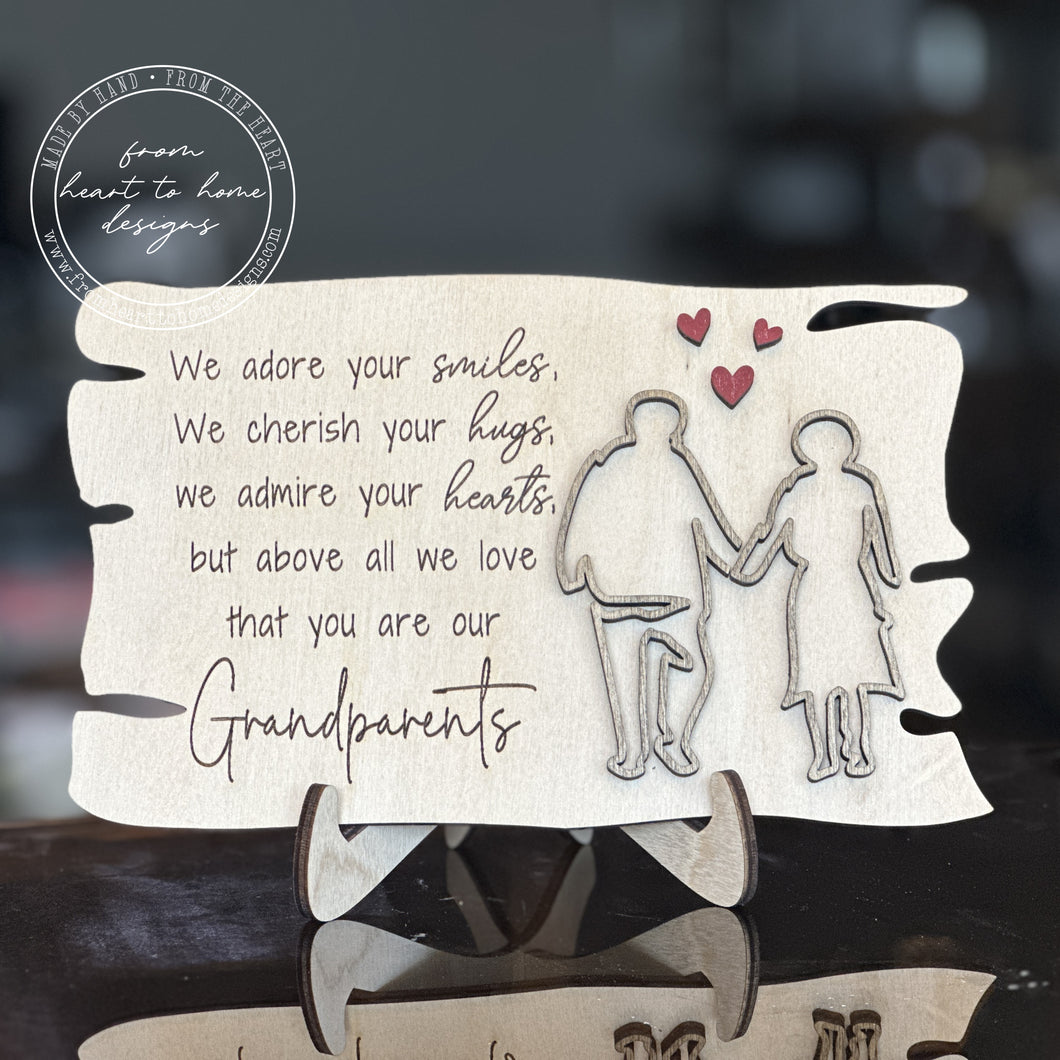 MADE BY HAND • FROM THE HEART
from
heart to home
designs
www.fromhearttohomedesigns.com
We adore your smiles,
We cherish your hugs,
we admire your hearts,
but above all we love
that you are our
Grandparents